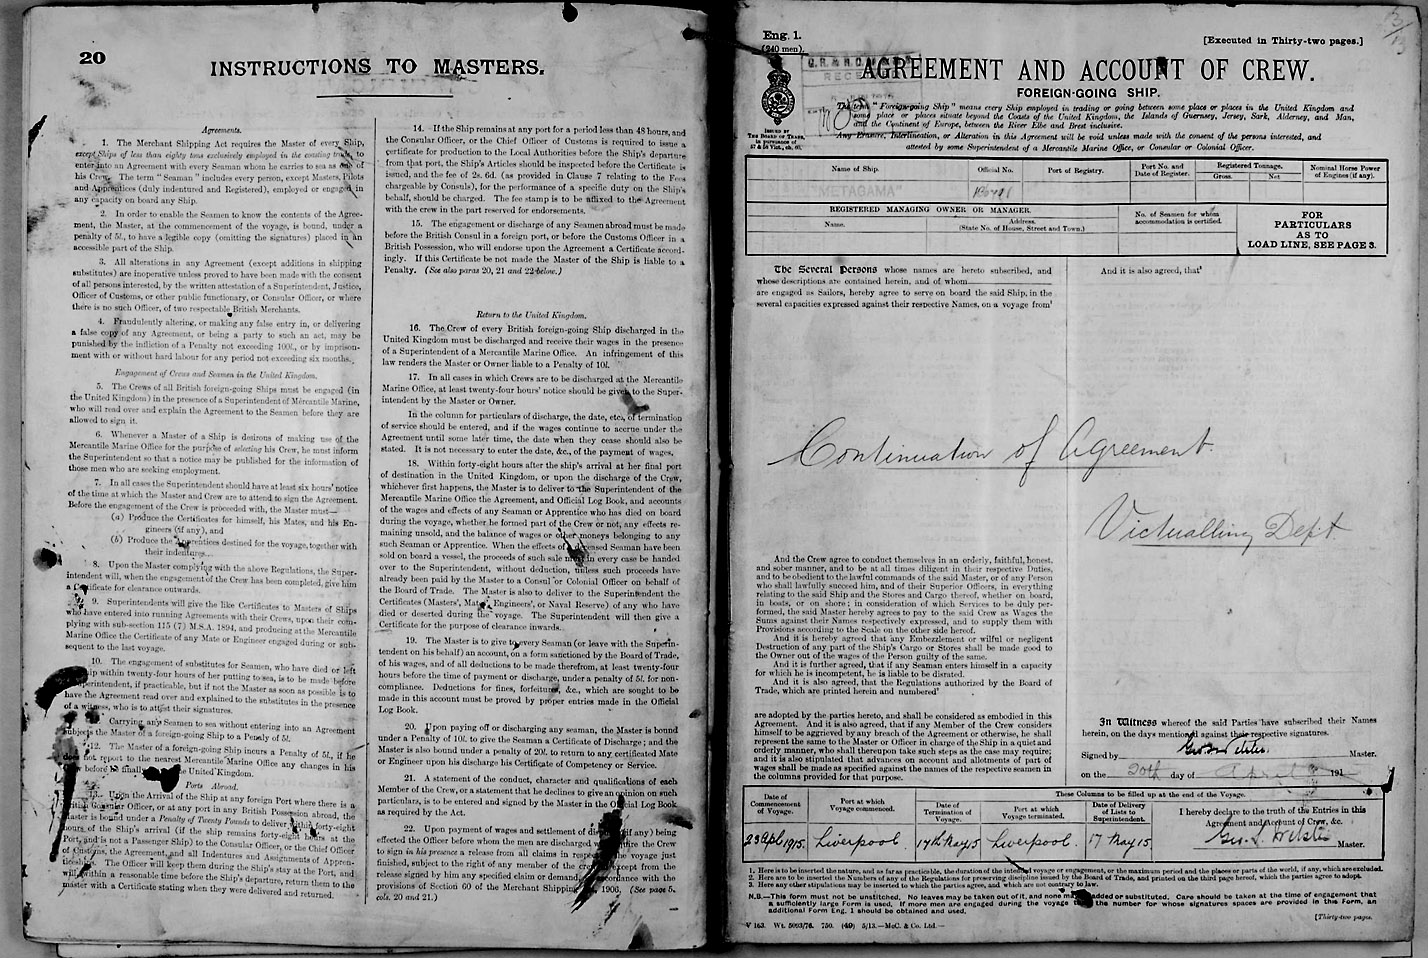 20
INSTRUCTIONS TO MASTERS.
Agreements.
1. The Merchant Shipping Act requires the Master of every Ship,
except Ships of less than eighty tons exclusively employed in the coasting trade, to
enter into an Agreement with every Seaman whom he carries to sea as one of
his Crew. The term "Seaman" includes every person, except Masters, Pilots
and Apprentices (duly indentured and Registered), employed or engaged in
any capacity on board any Ship.
2. In order to enable the Seamen to know the contents of the Agree-
ment, the Master, at the commencement of the voyage, is bound, under a
penalty of 5l., to have a legible copy (omitting the signatures) placed in an
accessible part of the Ship.
3. All alterations in any Agreement (except additions in shipping
substitutes) are inoperative unless proved to have been made with the consent
of all persons interested, by the written attestation of a Superintendent, Justice,
Officer of Customs, or other public functionary, or Consular Officer, or where
there is no such Officer, of two respectable British Merchants.
4. Fraudulently altering, or making any false entry in, or delivering
a false copy of any Agreement, or being a party to such an act, may be
punished by the infliction of a Penalty not exceeding 100l., or by imprison-
ment with or without hard labour for any period not exceeding six months.
Engagement of Crews and Seamen in the United Kingdom.
5. The Crews of all British foreign-going Ships must be engaged (in
the United Kingdom) in the presence of a Superintendent of Mercantile Marine,
who will read over and explain the Agreement to the Seamen before they are
allowed to sign it.
6. Whenever a Master of a Ship is desirous of making use of the
Mercantile Marine Office for the purpose of selecting his Crew, he must inform
the Superintendent so that a notice may be published for the information of
those men who are seeking employment.
7. In all cases the Superintendent should have at least six hours' notice
of the time at which the Master and Crew are to attend to sign the Agreement.
Before the engagement of the Crew is proceeded with, the Master must—
(a) Produce the Certificates for himself, his Mates, and his En-
gineers (if any), and
(b) Produce the Apprentices destined for the voyage, together with
their indentures.
8. Upon the Master complying with the above Regulations, the Super-
intendent will, when the engagement of the Crew has been completed, give him
a Certificate for clearance outwards.
9. Superintendents will give the like Certificates to Masters of Ships
who have entered into running Agreements with their Crews, upon their com-
plying with sub-section 115 (7) M.S.A. 1894, and producing at the Mercantile
Marine Office the Certificate of any Mate or Engineer engaged during or sub-
sequent to the last voyage.
10. The engagement of substitutes for Seamen, who have died or left
ship within twenty-four hours of her putting to sea, is to be made before
Superintendent, if practicable, but if not the Master as soon as possible is to
have the Agreement read over and explained to the substitutes in the presence
of a witness, who is to attest their signatures.
Carrying any Seamen to sea without entering into an Agreement
subjects the Master of a foreign-going Ship to a Penalty of 5l.
12. The Master of a foreign-going Ship incurs a Penalty of 5l., if he
does not report to the nearest Mercantile Marine Office any changes in his
before he finally the United Kingdom.
Ports Abroad.
13. Upon the Arrival of the Ship at any foreign Port where there is a
British Consular Officer, or at any port in any British Possession abroad, the
Master is bound under a Penalty of Twenty Pounds to deliver within forty-eight
hours of the Ship's arrival (if the ship remains forty-eight hours at the
Port, and is not a Passenger Ship) to the Consular Officer, or the Chief Officer
of Customs, the Agreement, and all Indentures and Assignments of Appren-
ticeship. The Officer will keep them during the Ship's stay at the Port, and
will, within a reasonable time before the Ship's departure, return them to the
master with a Certificate stating when they were delivered and returned.
14. If the Ship remains at any port for a period less than 48 hours, and
the Consular Officer, or the Chief Officer of Customs is required to issue a
certificate for production to the Local Authorities before the Ship's departure
from that port, the Ship's Articles should be inspected before the Certificate is
issued, and the fee of 2s. 6d. (as provided in Clause 7 relating to the Fees
chargeable by Consuls), for the performance of a specific duty on the Ship's
behalf, should be charged. The fee stamp is to be affixed to the Agreement
with the crew in the part reserved for endorsements.
15. The engagement or discharge of any Seamen abroad must be made
before the British Consul in a foreign port, or before the Customs Officer in a
British Possession, who will endorse upon the Agreement a Certificate accord-
ingly. If this Certificate be not made the Master of the Ship is liable to a
Penalty. (See also paras 20, 21 and 22 below.)
Return to the United Kingdom.
16. The Crew of every British foreign-going Ship discharged in the
United Kingdom must be discharged and receive their wages in the presence
of a Superintendent of a Mercantile Marine Office. An infringement of this
law renders the Master or Owner liable to a Penalty of 10l.
17. In all cases in which Crews are to be discharged at the Mercantile
Marine Office, at least twenty-four hours' notice should be given to the Super-
intendent by the Master or Owner.
In the column for particulars of discharge, the date, etc., of termination
of service should be entered, and if the wages continue to accrue under the
Agreement until some later time, the date when they cease should also be
stated. It is not necessary to enter the date, &c., of the payment of wages.
18. Within forty-eight hours after the ship's arrival at her final port
of destination in the United Kingdom, or upon the discharge of the Crew,
whichever first happens, the Master is to deliver to the Superintendent of the
Mercantile Marine Office the Agreement, and Official Log Book, and accounts
of the wages and effects of any Seaman or Apprentice who has died on board
during the voyage, whether he formed part of the Crew or not, any effects re-
maining unsold, and the balance of wages or other moneys belonging to any
such Seaman or Apprentice. When the effects of deceased Seaman have been
sold on board a vessel, the proceeds of such sale must in every case be handed
over to the Superintendent, without deduction, unless such proceeds have
already been paid by the Master to a Consul or Colonial Officer on behalf of
the Board of Trade. The Master is also to deliver to the Superintendent the
Certificates (Masters', Mates', Engineers', or Naval Reserve) of any who have
died or deserted during the voyage. The Superintendent will then give a
Certificate for the purpose of clearance inwards.
19. The Master is to give to every Seaman (or leave with the Superin-
tendent on his behalf) an account, on a form sanctioned by the Board of Trade,
of his wages, and of all deductions to be made therefrom, at least twenty-four
hours before the time of payment or discharge, under a penalty of 5l. for non-
compliance. Deductions for fines, forfeitures, &c., which are sought to be
made in this account must be proved by proper entries made in the Official
Log Book.
20. Upon paying off or discharging any seaman, the Master is bound
under a Penalty of 10l. to give the Seaman a Certificate of Discharge; and the
Master is also bound under a penalty of 20l. to return to any certificated Mate
or Engineer upon his discharge his Certificate of Competency or Service.
21. A statement of the conduct, character and qualifications of each
Member of the Crew, or a statement that he declines to give an opinion on such
particulars, is to be entered and signed by the Master in the Official Log Book
as required by the Act.
22. Upon payment of wages and settlement of (if any) being
effected the Officer before whom the men are discharged the Crew
to sign in his presence a release from all claims in respect the voyage just
finished, subject to the right of any member of the crew except from the
release signed by him any specified claim or demand, accordance with the
provisions of Section 60 of the Merchant Shipping 1906, (See page 5,
cols. 20 and 21.)
Eng. 1.
(240 men).
[Executed in Thirty-two pages.]
AGREEMENT AND ACCOUNT OF CREW.
FOREIGN-GOING SHIP.
ISSUED BY
THE BOARD OF TRADE,
in pursuance of
57 & 58 Vict., ch. 60.
The term "Foreign-going Ship" means every Ship employed in trading or going between some place or places in the United Kingdom and
some place or places situate beyond the Coasts of the United Kingdom, the Islands of Guernsey, Jersey, Sark, Alderney, and Man,
and the Continent of Europe, between the River Elbe and Brest inclusive.
Any Erasure, Interlineation, or Alteration in this Agreement will be void unless made with the consent of the persons interested, and
attested by some Superintendent of a Mercantile Marine Office, or Consular or Colonial Officer.
Name of Ship. Official No. Port of Registry. Port No. and Date of Register. Registered Tonnage. Gross. Net Nominal Horse Power of Engines (if any).
"METAGAMA"
REGISTERED MANAGING OWNER OR MANAGER.
Name. Address. (State No. of House, Street and Town.)
No. of Seamen for whom accommodation is certified.
FOR
PARTICULARS
AS TO
LOAD LINE, SEE PAGE 3.
The Several Persons whose names are hereto subscribed, and
whose descriptions are contained herein, and of whom
are engaged as Sailors, hereby agree to serve on board the said Ship, in the
several capacities expressed against their respective Names, on a voyage from¹
And it is also agreed, that³
Continuation of Agreement.
Victualling Dept.
And the Crew agree to conduct themselves in an orderly, faithful, honest,
and sober manner, and to be at all times diligent in their respective Duties,
and to be obedient to the lawful commands of the said Master, or of any Person
who shall lawfully succeed him, and of their Superior Officers, in everything
relating to the said Ship and the Stores and Cargo thereof, whether on board,
in boats, or on shore; in consideration of which Services to be duly per-
formed, the said Master hereby agrees to pay to the said Crew as Wages the
Sums against their Names respectively expressed, and to supply them with
Provisions according to the Scale on the other side hereof.
And it is hereby agreed that any Embezzlement or wilful or negligent
Destruction of any part of the Ship's Cargo or Stores shall be made good to
the Owner out of the wages of the Person guilty of the same.
And it is further agreed, that if any Seaman enters himself in a capacity
for which he is incompetent, he is liable to be disrated.
And it is also agreed, that the Regulations authorized by the Board of
Trade, which are printed herein and numbered²
are adopted by the parties hereto, and shall be considered as embodied in this
Agreement. And it is also agreed, that if any Member of the Crew considers
himself to be aggrieved by any breach of the Agreement or otherwise, he shall
represent the same to the Master or Officer in charge of the Ship in a quiet and
orderly manner, who shall thereupon take such steps as the case may require;
and it is also stipulated that advances on account and allotments of part of
wages shall be made as specified against the names of the respective seamen in
the columns provided for that purpose.
In Witness whereof the said Parties have subscribed their Names
herein, on the days mentioned against their respective signatures.
Signed by Master.
on the 20th day of April 191
These Columns to be filled up at the end of the Voyage.
Date of Commencement of Voyage. Port at which Voyage commenced. Date of Termination of Voyage. Port at which Voyage terminated. Date of Delivery of Lists to Superintendent.
I hereby declare to the truth of the Entries in this
Agreement and Account of Crew, &c.
23 Apl 1915. Liverpool. 17th May 15 Liverpool. 17 May 15
Geo. S. Webster Master.
1. Here is to be inserted the nature, and as far as practicable, the duration of the intended voyage or engagement, or the maximum period and the places or parts of the world, if any, which are excluded.
2. Here are to be inserted the Numbers of any of the Regulations for preserving discipline issued by the Board of Trade, and printed on the third page hereof, which the parties agree to adopt.
3. Here any other stipulations may be inserted to which the parties agree, and which are not contrary to law.
N.B.—This form must not be unstitched. No leaves may be taken out of it, and none may be added or substituted. Care should be taken at the time of engagement that
a sufficiently large Form is used. If more men are engaged during the voyage than the number for whose signatures spaces are provided in this Form, an
additional Form Eng. 1 should be obtained and used.
[Thirty-two pages.
V 163. Wt. 5093/76. 750. (49) 5/13.—McC. & Co. Ltd.—